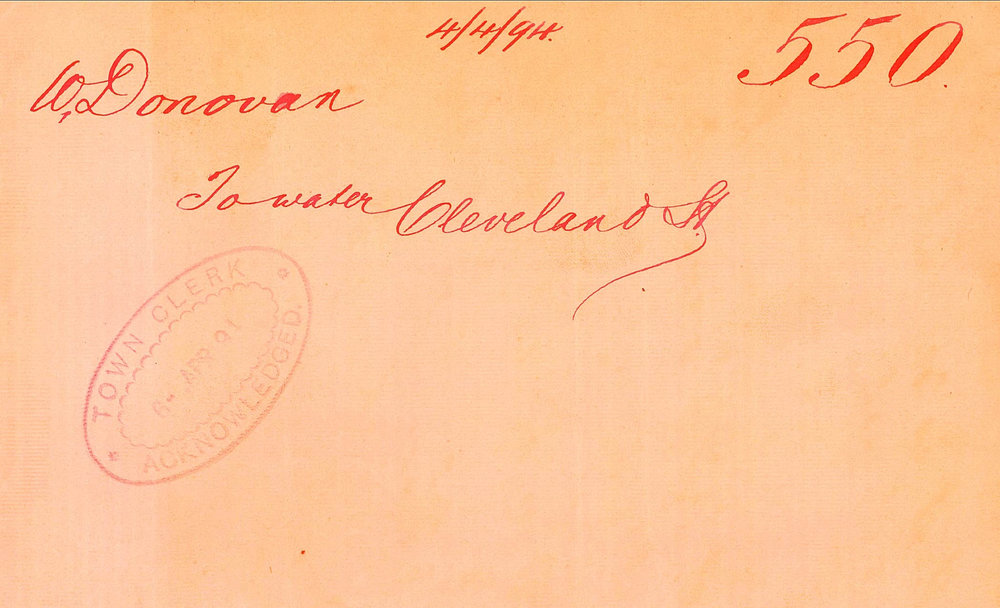 4/4/94.
550.
W. Donovan
To water Cleveland St.
TOWN CLERK
APR 91
ACKNOWLEDGED.